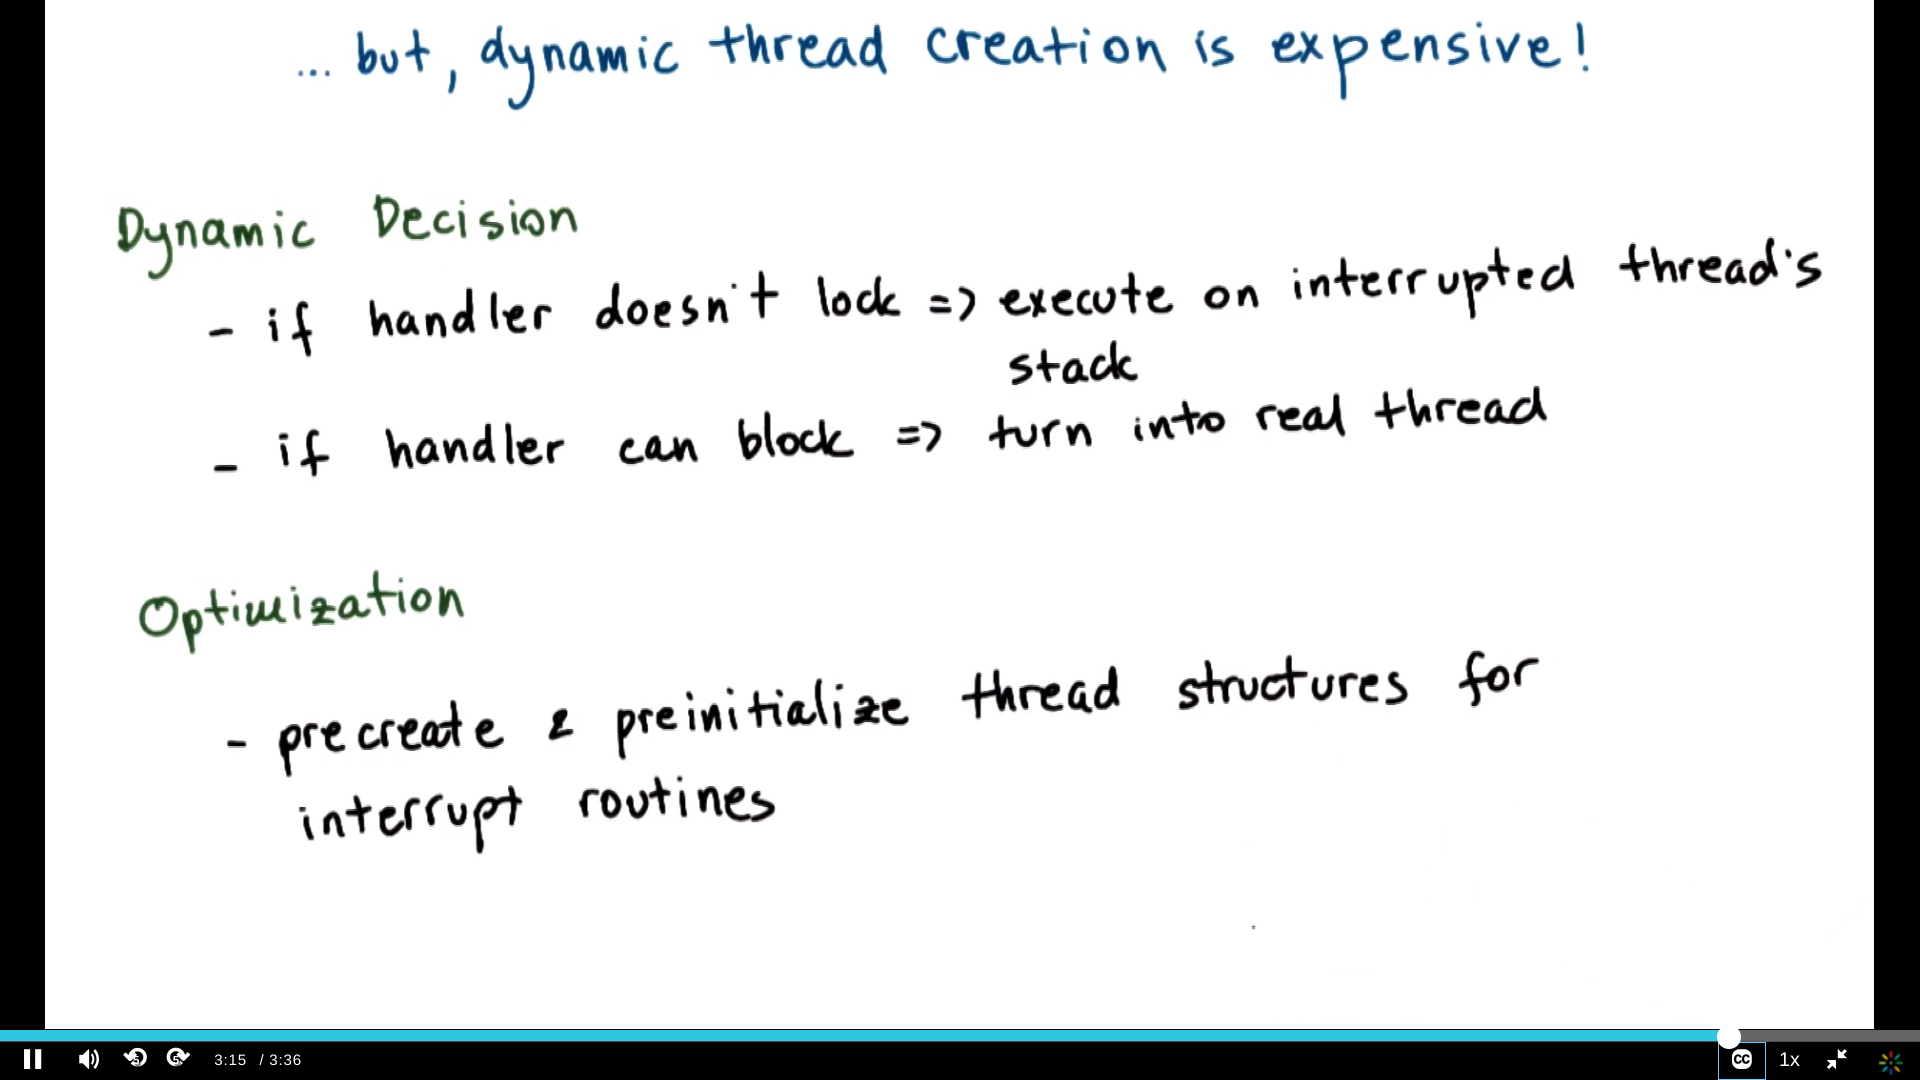 ... but, dynamic thread creation is expensive!
Dynamic Decision
- if handler doesn't lock => execute on interrupted thread's
stack
- if handler can block => turn into real thread
Optimization
- precreate & preinitialize thread structures for
interrupt routines
5 5 3:15 / 3:36 CC 1x